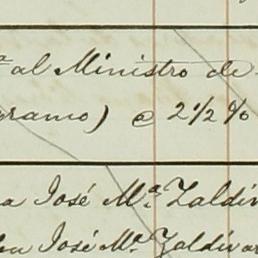 al Ministro de
gramo) @ 2 1/2 %
a José Mª. Zaldív
José Mª. Zaldívar